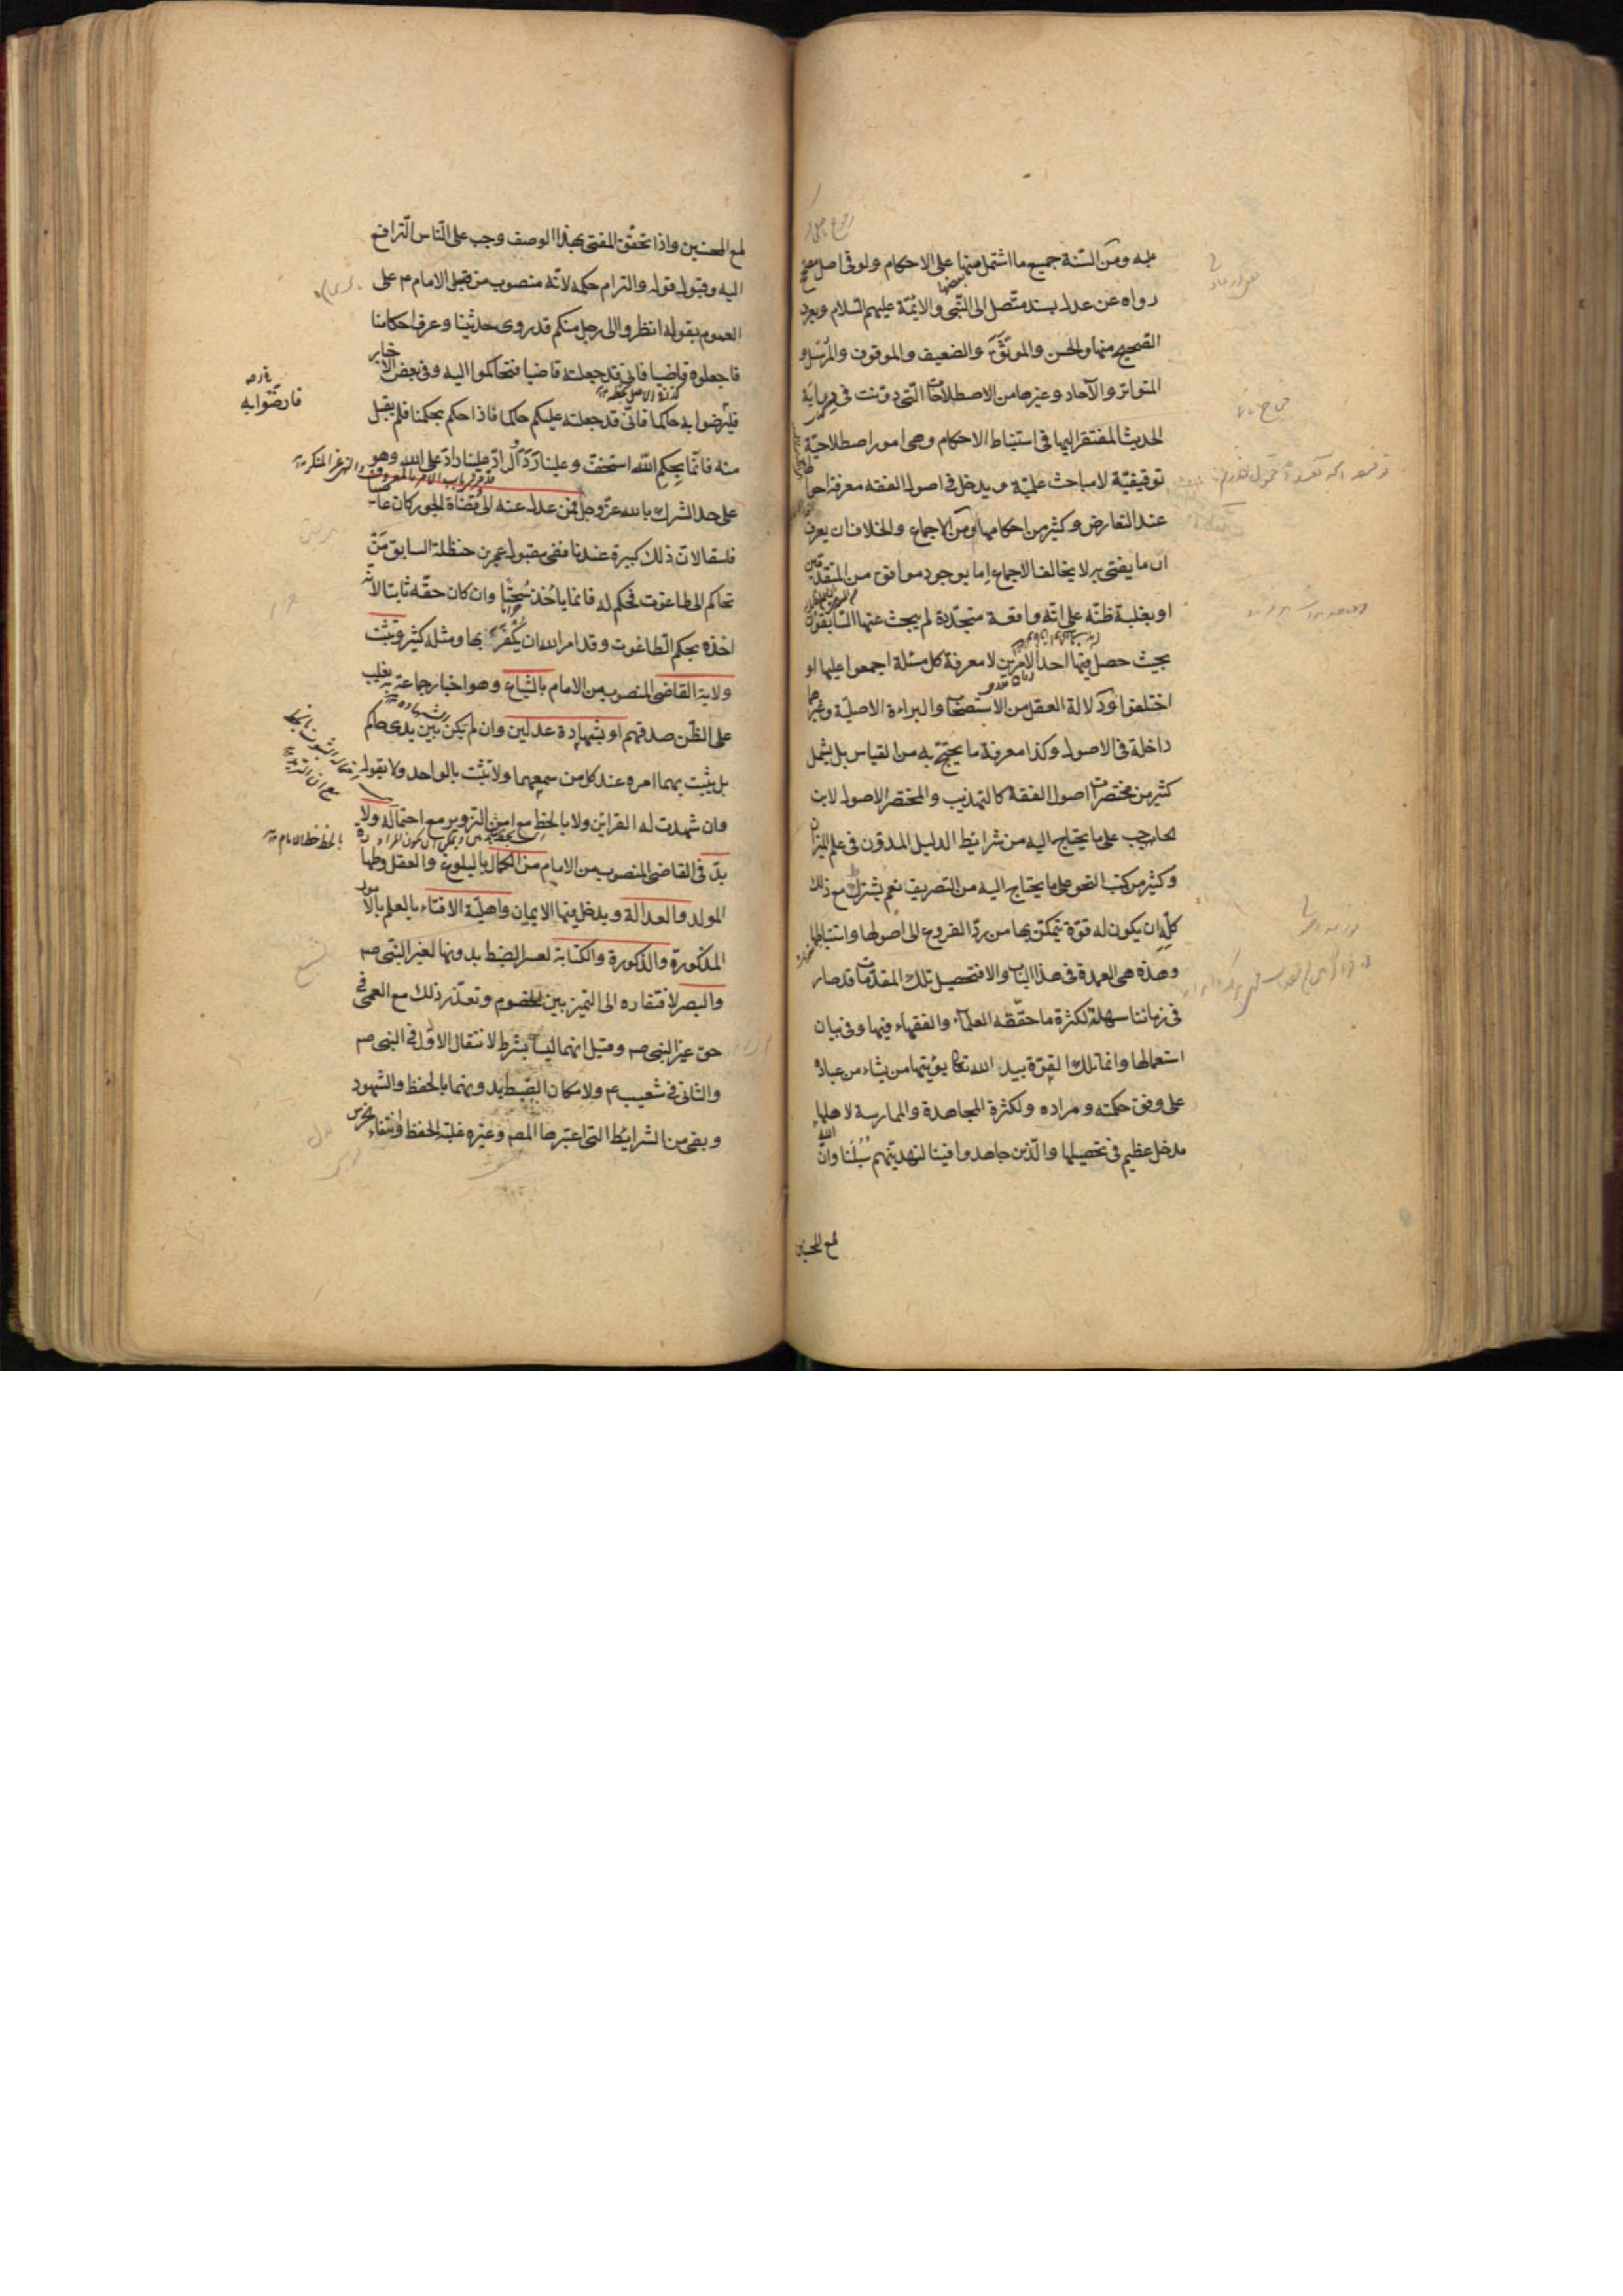 عليه ومن السّنة جميع ما اشتمل منها على الاحكام ولو فى اصل مصحح
رواه عن عدل بسند متّصل الى النّبى والائمّة عليهم السّلام ويعرف
الصّحيح منها والحسن والموثّق والضعيف والموقوف والمرسل و
المتواتر والآحاد وغيرها من الاصطلاحات الّتى دوّنت فى دراية
الحديث المفتقر اليها فى استنباط الاحكام وهى امور اصطلاحيّة
توقيفيّة لا مباحث علميّة ويدخل فى اصول الفقه معرفة احوالها
عند التعارض وكثير من احكامها ومن الاجماع والخلاف ان يعرف
ان ما يفتى به لا يخالف الاجماع اما بوجود موافق من المتقدّمين
او بغلبة ظنّه على انّه واقعة متجدّدة لم يبحث عنها السّابقون
بحيث حصل فيها احد الامرين لا معرفة كل مسئلة اجمعوا عليها او
اختلفوا ودلالة العقل من الاستصحاب والبراءة الاصليّة وغيرهما
داخلة فى الاصول وكذا معرفة ما يحتجّ به من القياس بل يشمل
كثير من مختصرات اصول الفقه كالتهذيب والمختصر الاصول لابن
الحاجب على ما يحتاج اليه من شرائط الدليل المدوّن فى علم الميزان
وكثير من كتب النحو على ما يحتاج اليه من التصريف نعم يشترط مع ذلك
كلّه ان يكون له قوّة يتمكّن بها من ردّ الفروع الى اصولها واستنباطها
وهذه هى العمدة فى هذا الباب والا فتحصيل تلك المقدّمات قد صار
فى زماننا سهلة لكثرة ما حقّقه العلماء والفقهاء فيها وفى بيان
استعمالها وانما تلك القوّة بيد الله تعالى يؤتيها من يشاء من عباده
على وفق حكمته ومراده ولكثرة المجاهدة والممارسة لاهلها
مدخل عظيم فى تحصيلها والّذين جاهدوا فينا لنهدينّهم سُبُلَنا وانّ الله
لمع المحسنين
لمع المحسنين واذا تحقّق المفتى بهذا الوصف وجب على النّاس التّرافع
اليه وقبول قوله والتزام حكمه لانّه منصوب من قبل الامام ع على
العموم بقوله انظروا الى رجل منكم قد روى حديثنا وعرف احكامنا
فاجعلوه قاضيا فانى قد جعلته قاضيا فتحاكموا اليه وفى بعض الاخبار
فارضوا به
فليرضوا به حكما فانّى قد جعلته عليكم حاكما فاذا حكم بحكمنا فلم يقبل
منه فانّما بحكم اللّه استخفّ وعلينا ردّ والرادّ علينا رادّ على الله وهو
على حد الشرك بالله عزّ وجل فمن عدل عنه الى قضاة الجور كان عاصيا
فاسقا لانّ ذلك كبيرة عندنا ففى مقبول عمر بن حنظلة السابق مَنْ
تحاكم الى طاغوت فحكم له فانما يأخذ سُحتًا وان كان حقّه ثابتا لانّه
اخذه بحكم الطّاغوت وقد امر الله ان يُكْفَرَ بها ومثله كثير وتثبت
ولاية القاضى المنصوب من الامام بالشّياع وهو اخبار جماعة به يغلب
على الظّن صدقهم او بشهادة عدلين وان لم تكن بين يدى حاكم
بل يثبت بهما امره عند كل من سمعهما ولا تثبت بالواحد ولا بقوله
وان شهدت له القرائن ولا بالخط مع امن التزوير مع احتماله ولا
بالخط خط الامام
بدّ فى القاضى المنصوب من الامام من الكمال بالبلوغ والعقل وطهارة
المولد والعدالة ويدخل فيها الايمان واهليّة الافتاء بالعلم بالامور
المذكورة والذكورة والكتابة لعسر الضبط بدونها لغير النّبى ص
والبصر لافتقاره الى التميز بين الخصوم وتعذّر ذلك مع العمى فى
حق غير النبى ص وقيل انهما ليسا بشرط لانتقال الاوّل فى النبى ص
والثانى فى شعيب ع ولامكان الضبط بدونهما بالحفظ والشهود
وبقى من الشرائط التى اعتبرها المص وغيره غلبة الحفظ وانتفاء الخرس